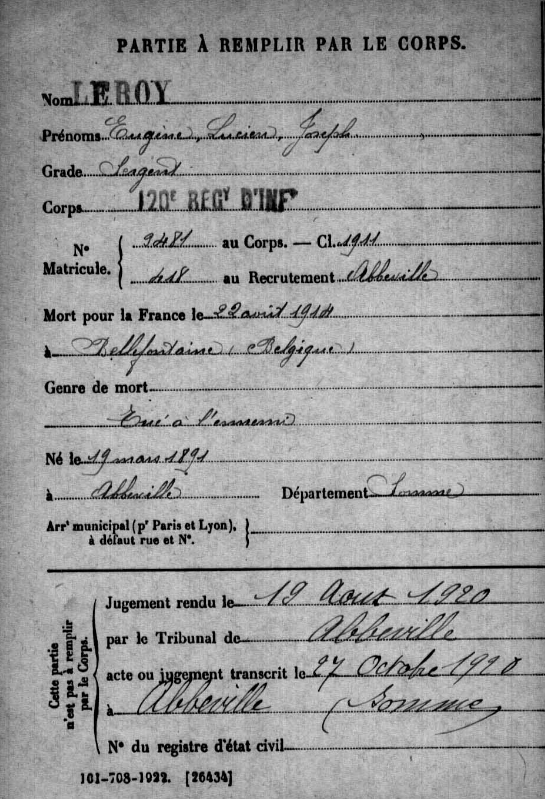 PARTIE À REMPLIR PAR LE CORPS.
Nom LEROY
Prénoms Eugène, Lucien, Joseph
Grade Sergent
Corps 120e REGt D'INFie
N° Matricule. { 9481 au Corps. — Cl. 1911
418 au Recrutement Abbeville
Mort pour la France le 22 août 1914
à Bellefontaine (Belgique)
Genre de mort
Tué à l'ennemi
Né le 19 mars 1891
à Abbeville Département Somme
Arrt municipal (pr Paris et Lyon),
à défaut rue et N°.
Cette partie n'est pas à remplir par le Corps.
Jugement rendu le 19 Août 1920
par le Tribunal de Abbeville
acte ou jugement transcrit le 27 Octobre 1920
à Abbeville (Somme)
N° du registre d'état civil
101-708-1922. [26434]